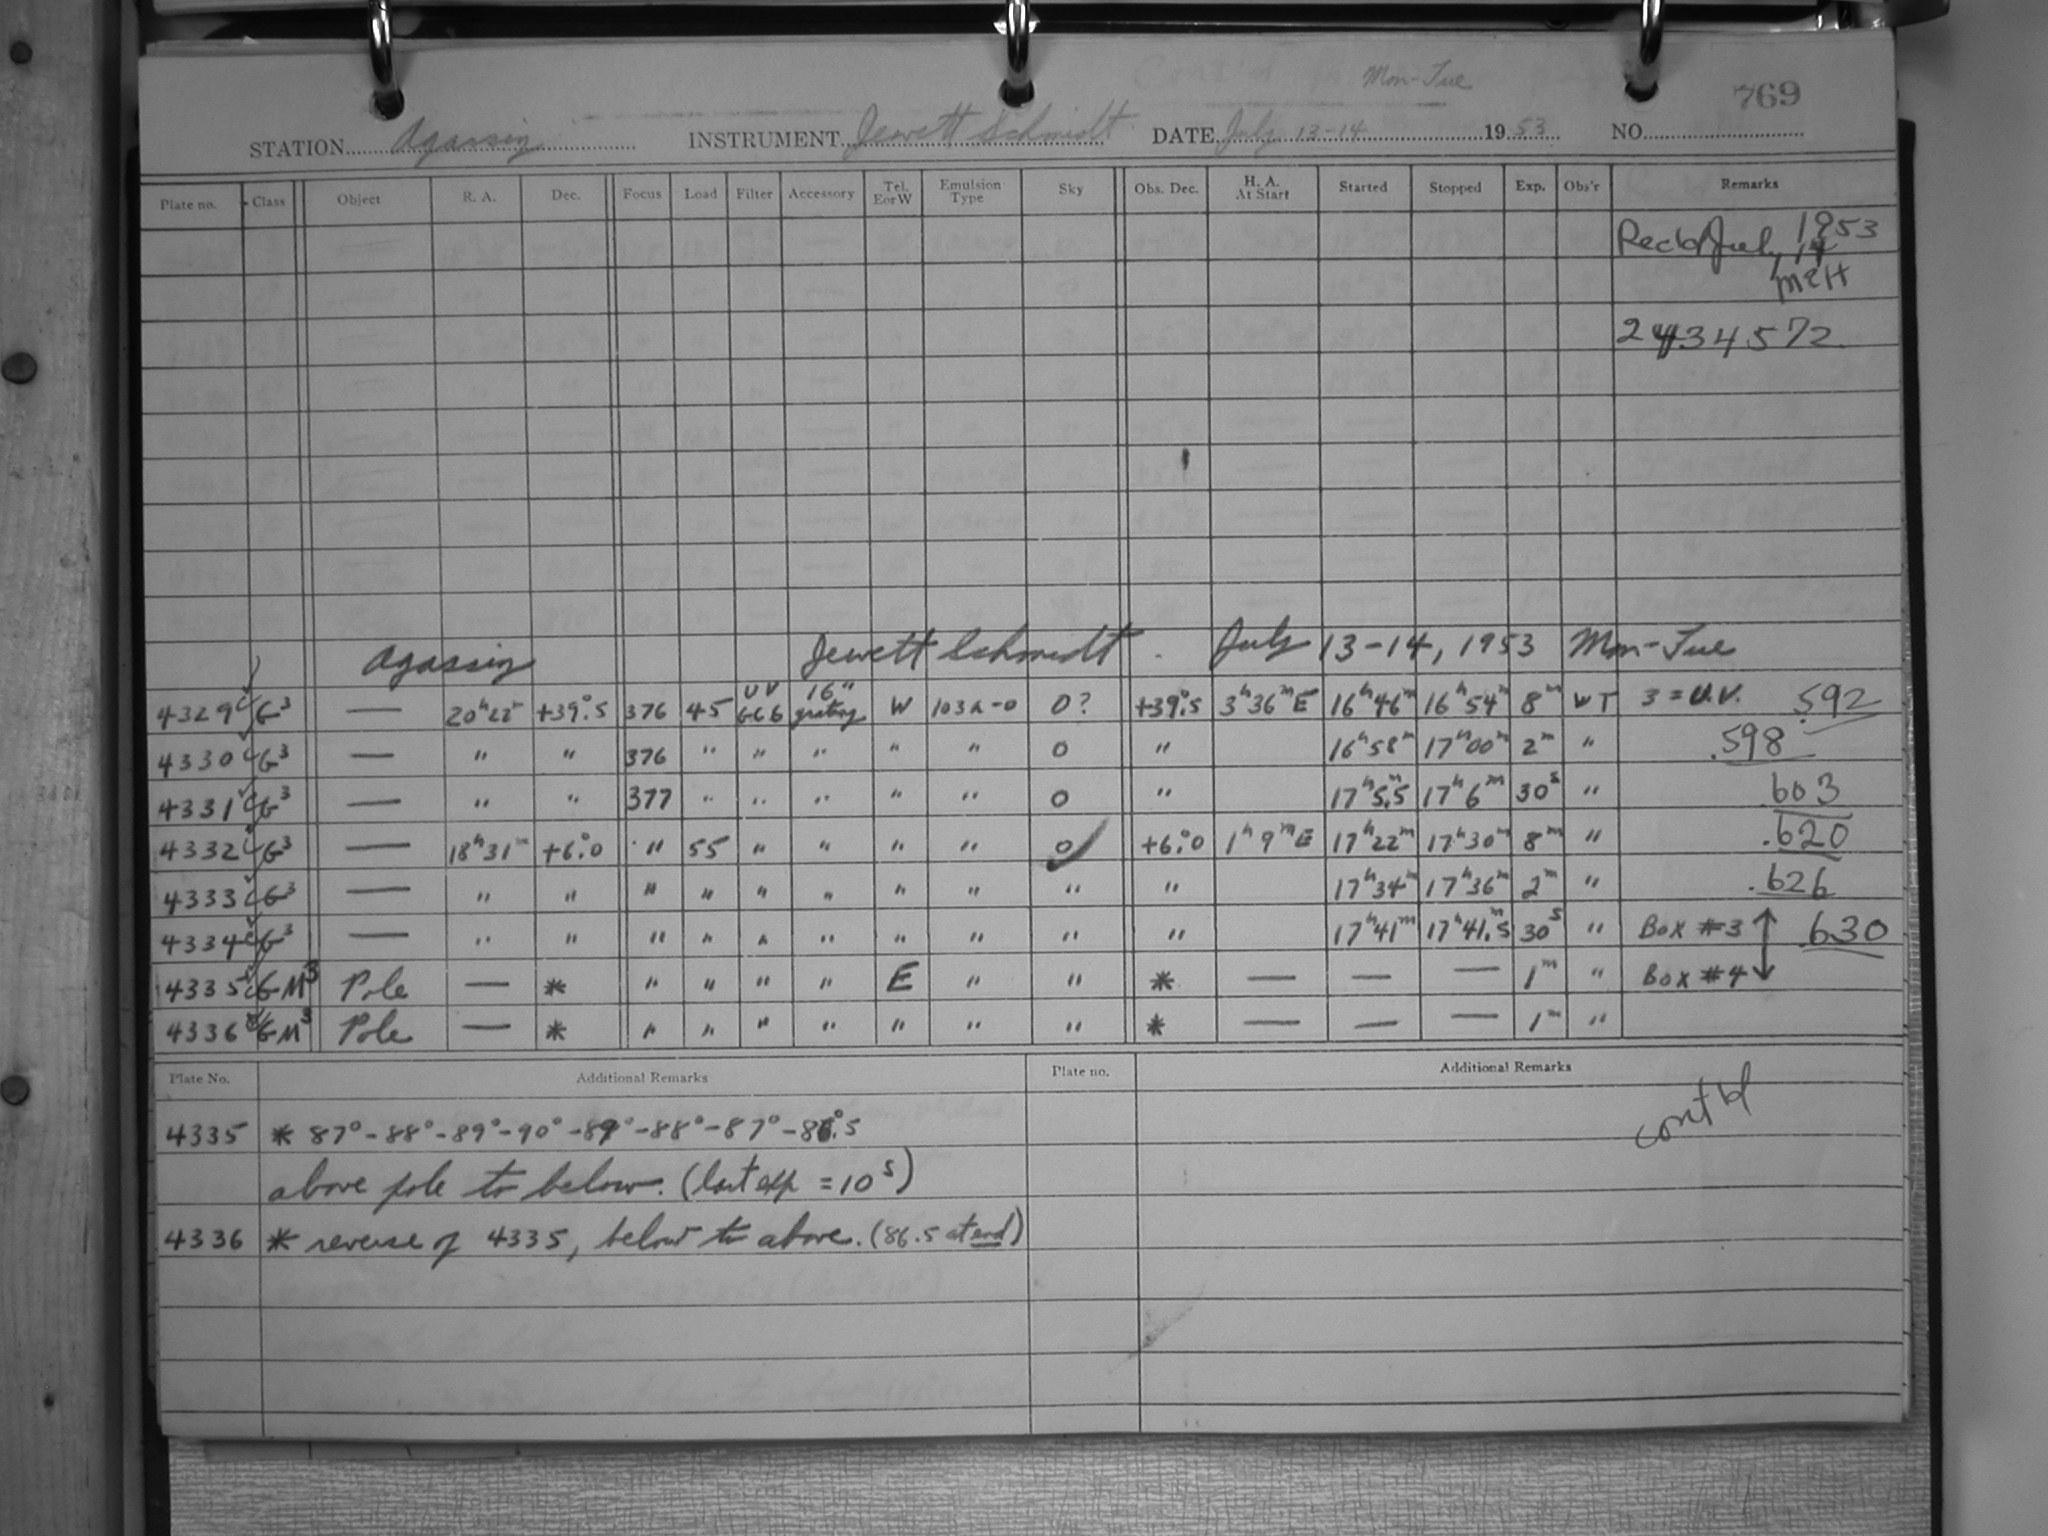 Mon-Tue 769
STATION Agassiz INSTRUMENT Jewett Schmidt DATE July 13-14 1953 NO.
Plate no. Class Object R. A. Dec. Focus Load Filter Accessory Tel. E or W Emulsion Type Sky Obs. Dec. H. A. At Start Started Stopped Exp. Obs'r Remarks
Rec'd July 14 1953
2434572
Agassiz Jewett Schmidt July 13-14, 1953 Mon-Tue
4329 G³ — 20ʰ22ᵐ +39°.5 376 45 UV GG6 16" grating W 103a-O 0? +39°.5 3ʰ36ᵐE 16ʰ46ᵐ 16ʰ54ᵐ 8ᵐ WT 3 = U.V. .592
4330 G³ — " " 376 " " " " " 0 " 16ʰ58ᵐ 17ʰ00ᵐ 2ᵐ " .598
4331 G³ — " " 377 " " " " " 0 " 17ʰ5.5ᵐ 17ʰ6ᵐ 30ˢ " .603
4332 G³ — 18ʰ31ᵐ +6°.0 " 55 " " " " 0 +6°.0 1ʰ9ᵐE 17ʰ22ᵐ 17ʰ30ᵐ 8ᵐ " .620
4333 G³ — " " " " " " " " " " 17ʰ34ᵐ 17ʰ36ᵐ 2ᵐ " .626
4334 G³ — " " " " " " " " " " 17ʰ41ᵐ 17ʰ41.5ᵐ 30ˢ " Box #3 .630
4335 GM³ Pole — * " " " " E " " * — — — 1ᵐ " Box #4
4336 GM³ Pole — * " " " " " " " * — — — 1ᵐ "
Plate No. Additional Remarks Plate no. Additional Remarks
cont'd
4335 * 87° - 88° - 89° - 90° - 89° - 88° - 87° - 86°.5
above pole to below. (last exp = 10ˢ)
4336 * reverse of 4335, below to above. (86.5 at end)